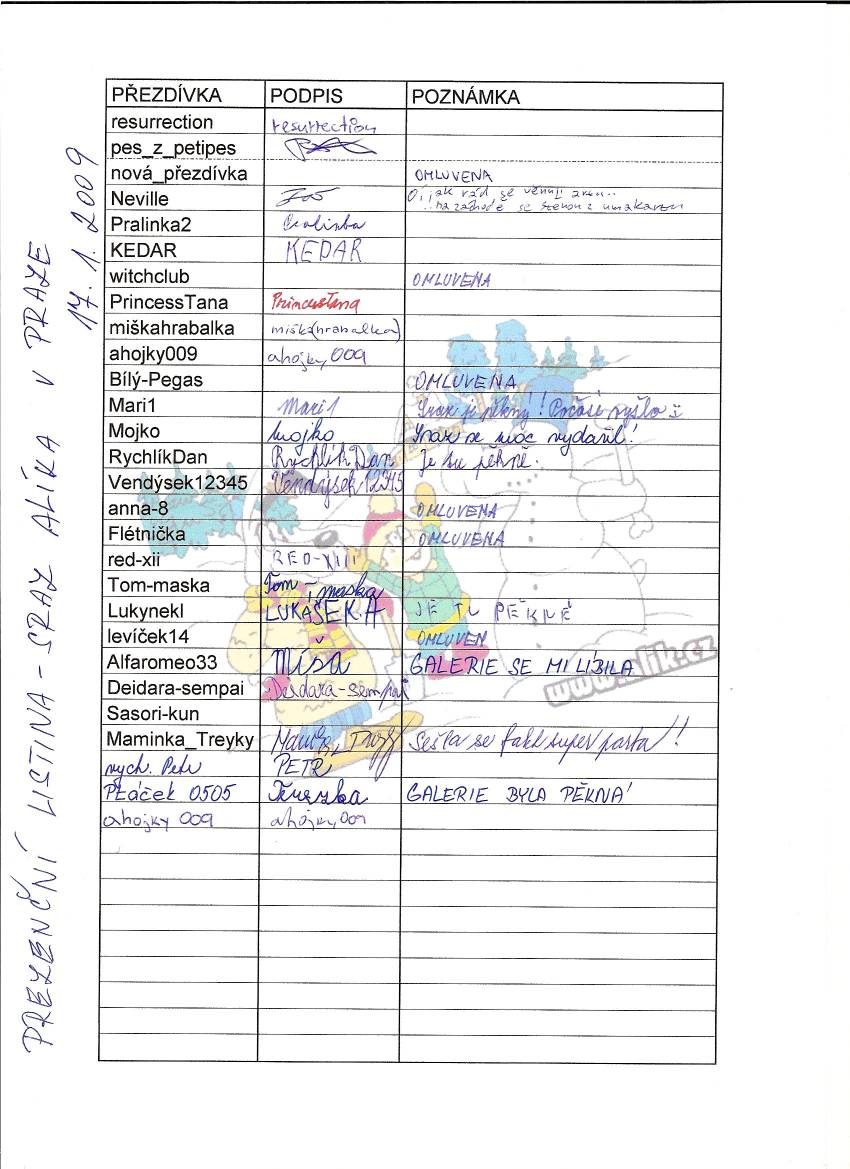 PREZENČNÍ LISTINA - SRAZ ALÍKA V PRAZE
17. 1. 2009
PŘEZDÍVKA PODPIS POZNÁMKA
resurrection resurrection
pes_z_petipes
nová_přezdívka OMLUVENA
Neville Ó, jak rád se věnuji
na záchodě se
Pralinka2 Pralinka
KEDAR KEDAR
witchclub OMLUVENA
PrincessTana PrincessTana
miškahrabalka miška(hrabalka)
ahojky009 ahojky009
Bílý-Pegas OMLUVENA
Mari1 Mari1 Sraz je pěkný! Počasí vyšlo
Mojko Mojko Sraz se moc vydařil!
RychlíkDan RychlíkDan Je tu pěkně.
Vendýsek12345 Vendýsek12345
anna-8 OMLUVENA
Flétnička OMLUVENA
red-xii RED-XIII
Tom-maska Tom-maska
Lukynekl LUKAŠEK.A JE TU PĚKNĚ
levíček14 OMLUVEN
Alfaromeo33 Míša GALERIE SE MI LÍBILA
Deidara-sempai Deidara-sempai
Sasori-kun
Maminka_Treyky Sešla se fakt super parta!!
vych. Petr PETR
Ptáček 0505 Terezka GALERIE BYLA PĚKNÁ
ahojky 009 ahojky009
www.alik.cz